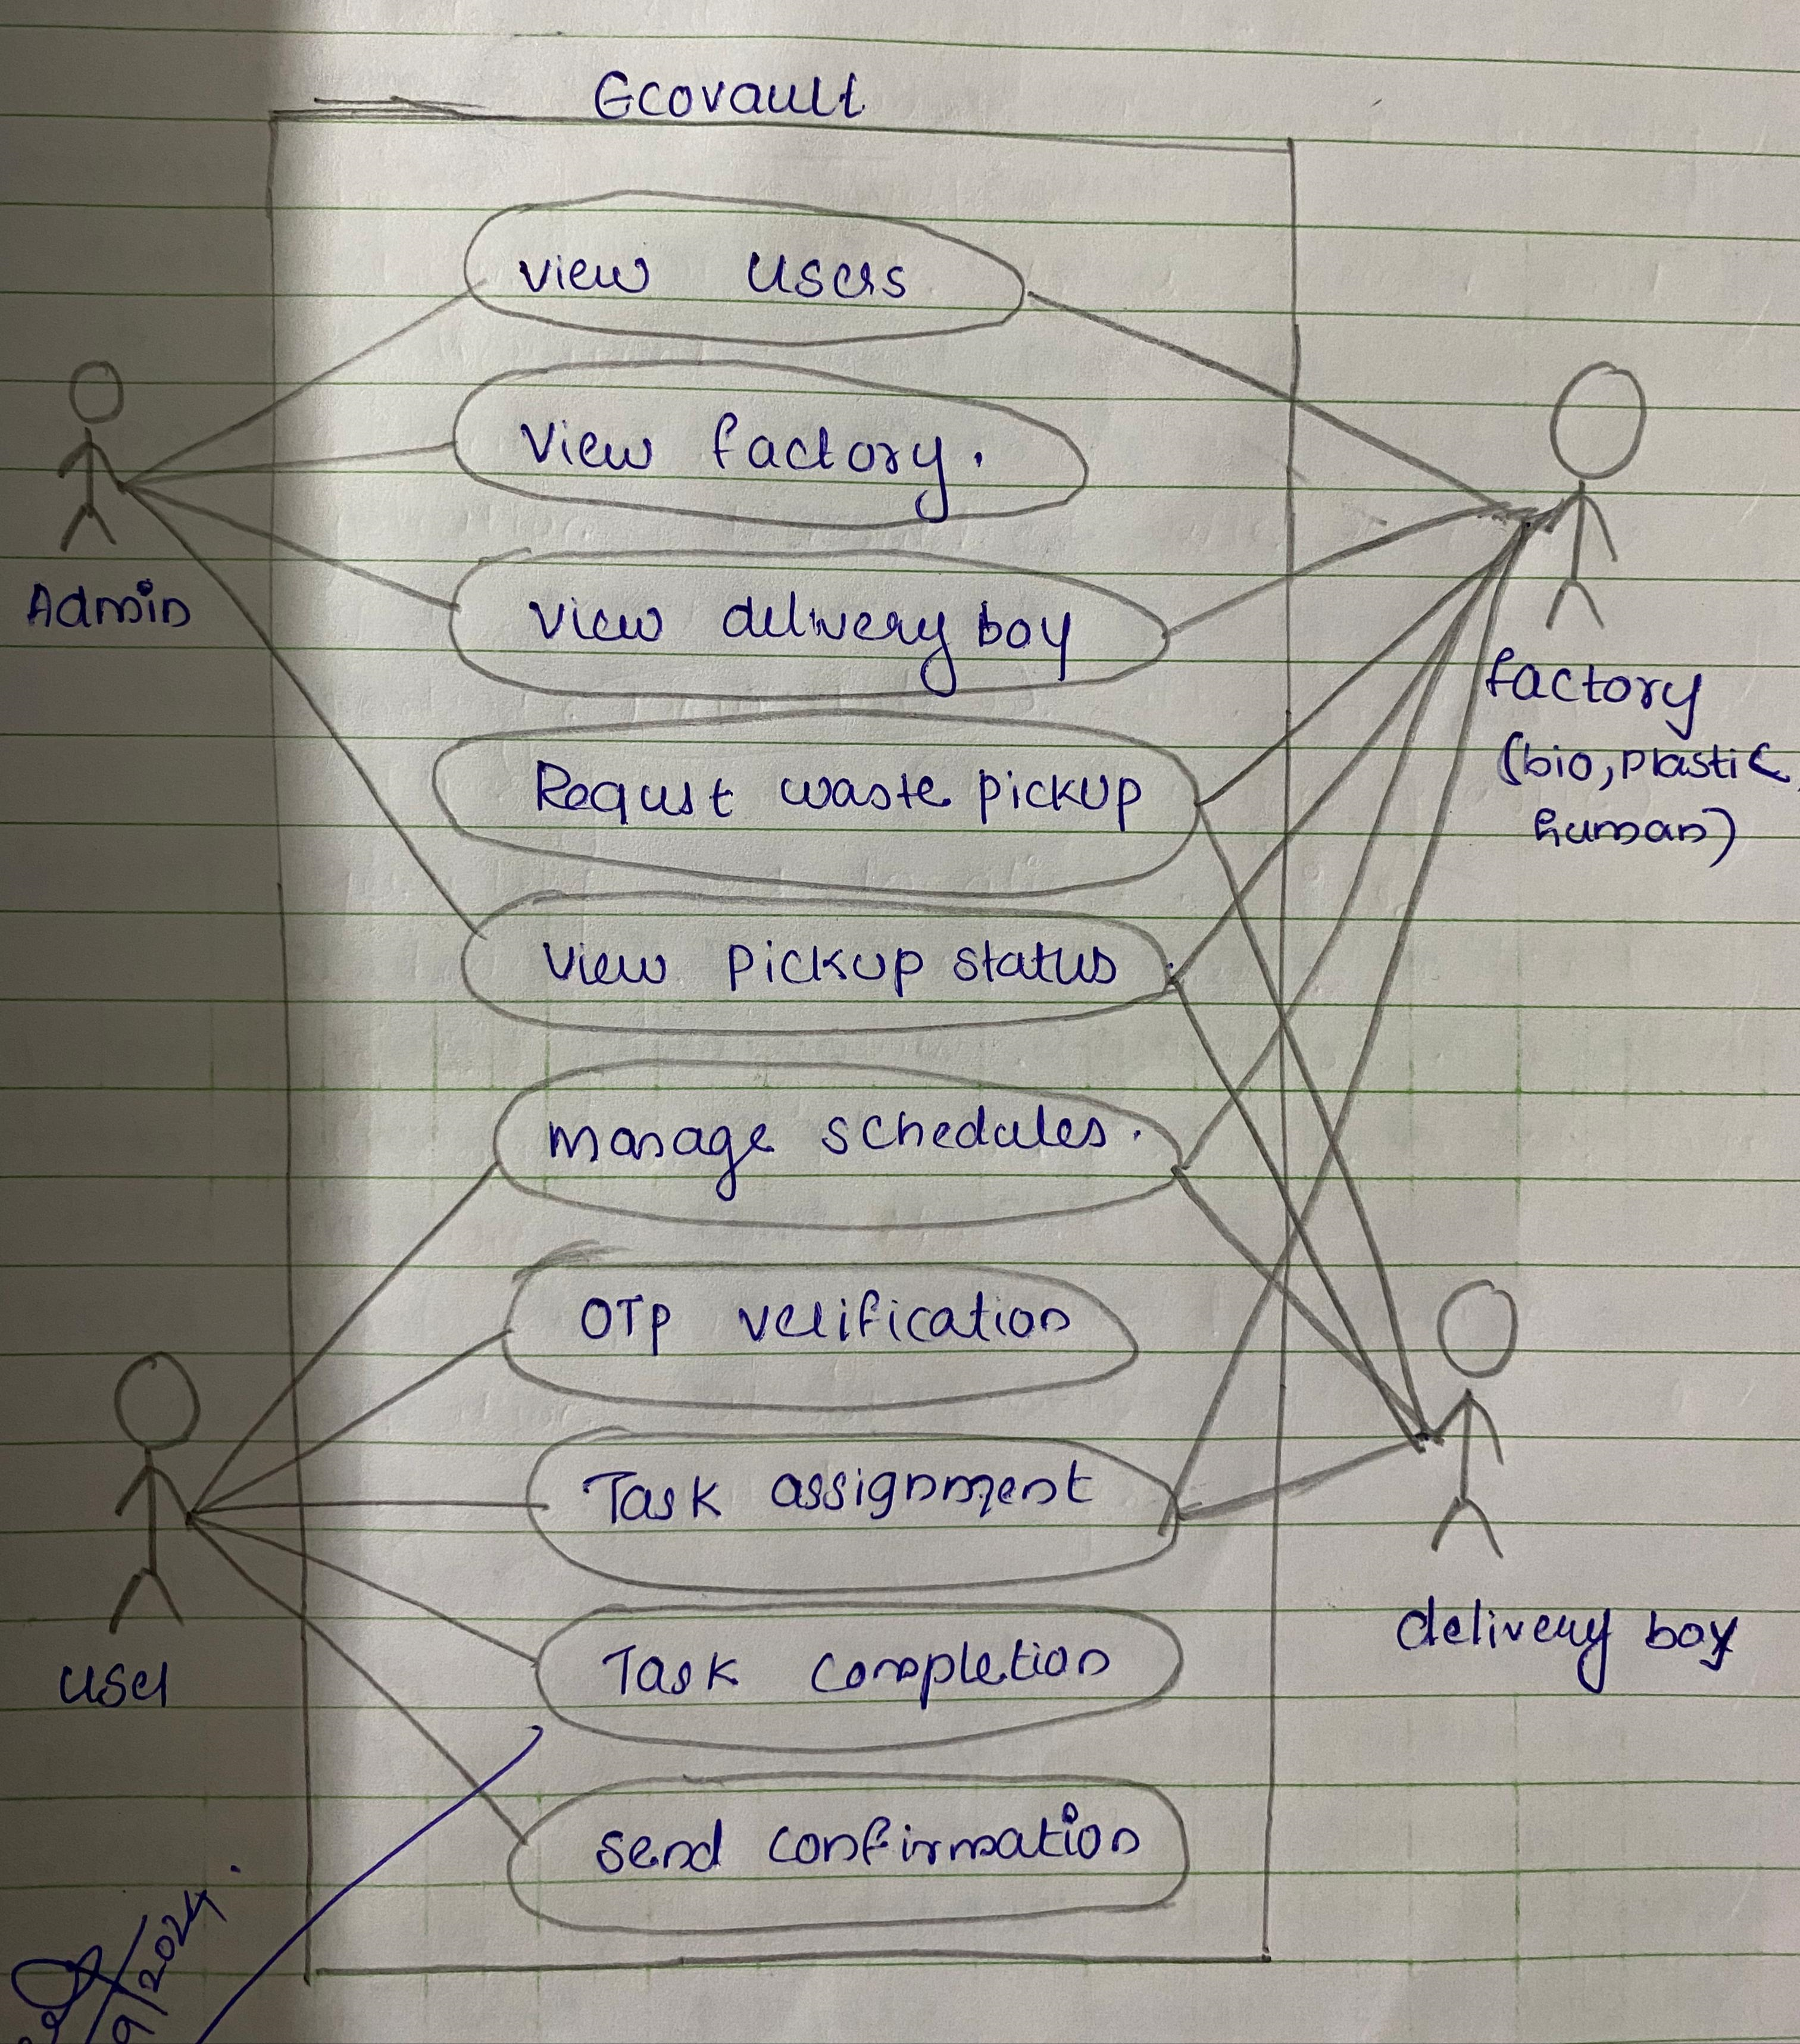 Ecovault
view users
view factory.
view delivery boy
Requst waste pickup
view pickup status
manage schedules.
OTP verification
Task assignment
Task completion
send confirmation
Admin
user
factory
(bio, plastic,
human)
delivery boy
9/2024.